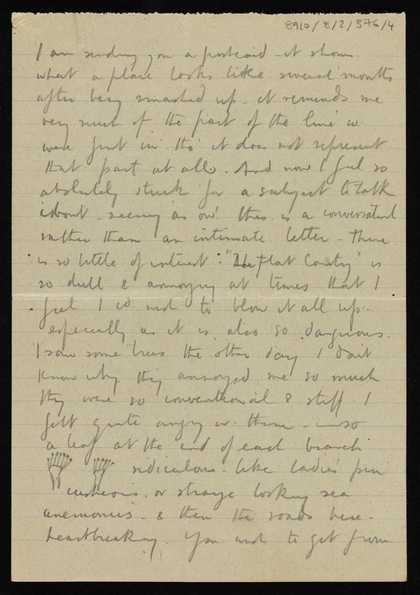 8910/8/2/376/4
I am sending you a postcard - it shows
what a place looks like several months
after being smashed up - it reminds me
very much of the part of the line we
were first in tho' it does not represent
that part at all. And now I feel so
absolutely stuck for a subject to talk
about - seeing as how this is a conversational
rather than an intimate letter - There
is so little of interest. "The flat Country" is
so dull & annoying at times that I
feel I wd. wish to blow it all up -
especially as it is also so dangerous.
I saw some trees the other day I don't
know why they annoyed me so much
they were so conventional & stiff I
felt quite angry w. them - so
a leaf at the end of each branch
ridiculous - like ladies' pin
cushions. or strange looking sea
anemones - & then the roads here -
heartbreaking. You wish to get from